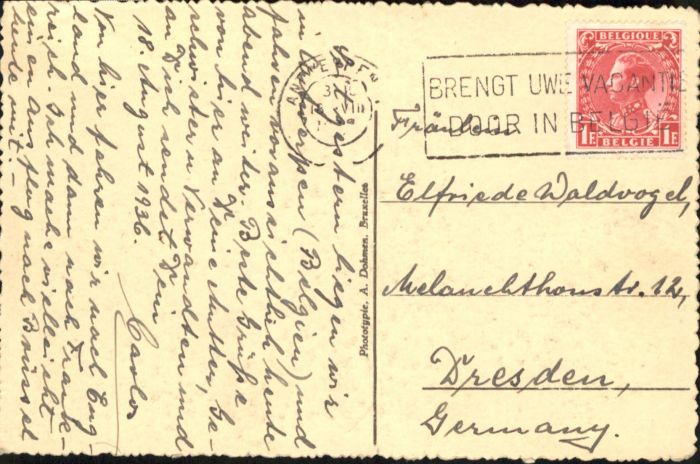 Seit gestern liegen wir
in Antwerpen (Belgien) und
fahren voraussichtlich heute
abend weiter. Beste Grüße
von hier an Deine Mutter, Ge-
schwister u. Verwandten und
an Dich sendet Dein
18. August 1936. Carlos
Von hier fahren wir nach Eng-
land und dann nach Frank-
reich. Ich mache vielleicht
einen Ausflug nach Brüssel
heute mit.
Phototypie. A. Dohmen, Bruxelles
ANTWERPEN
BRENGT UWE VACANTIE
DOOR IN BELGIË
BELGIQUE
1F 1F
BELGIE
Fräulein
Elfriede Waldvogel,
Melanchthonstr. 12,
Dresden,
Germany.